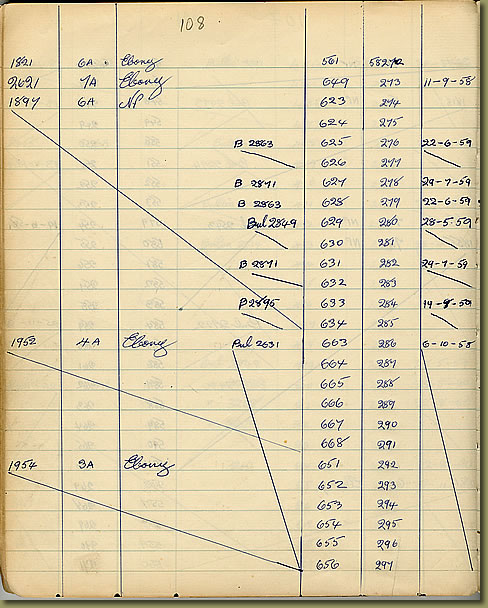 108
1821 6A Ebony 561 58272
2621 7A Ebony 649 273 11-9-58
1897 6A NP 623 274
624 275
B 2863 625 276 22-6-59
626 277
B 2871 627 278 29-7-59
B 2863 628 279 22-6-59
Bul 2849 629 280 28-5-59
630 281
B 2871 631 282 29-7-59
632 283
B 2895 633 284 14-9-59
634 285
1952 4A Ebony Bul 2631 663 286 6-10-58
664 287
665 288
666 289
667 290
668 291
1954 3A Ebony 651 292
652 293
653 294
654 295
655 296
656 297